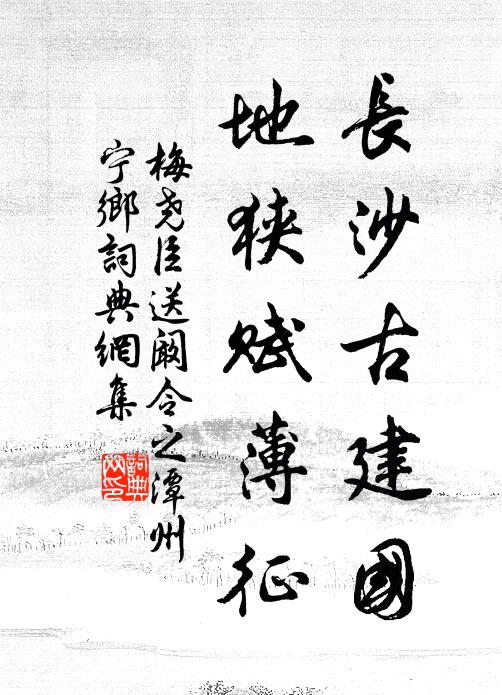 長沙古建國
地狹賦薄征
梅尧臣送阚令之潭州
宁鄉詞典網集
詞典網印